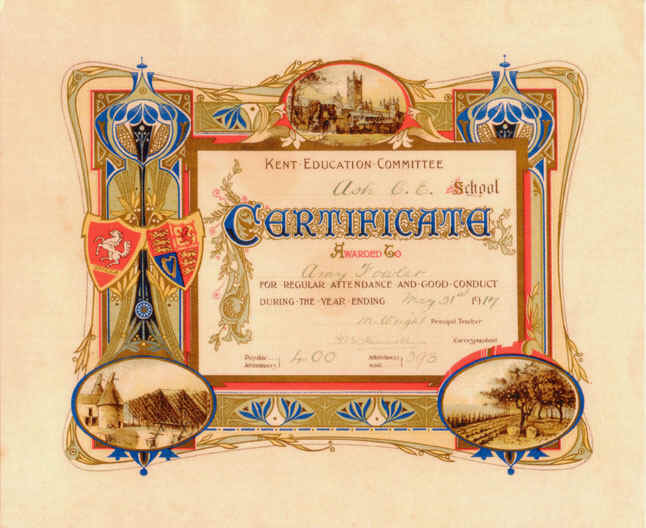 KENT·EDUCATION·COMMITTEE
Ash C. E. School
CERTIFICATE
AWARDED TO
Amy Fowler
FOR REGULAR ATTENDANCE AND GOOD CONDUCT
DURING·THE·YEAR·ENDING May 31st 1917
M. Wright Principal Teacher
Correspondent
Possible Attendances 400 Attendances made 393